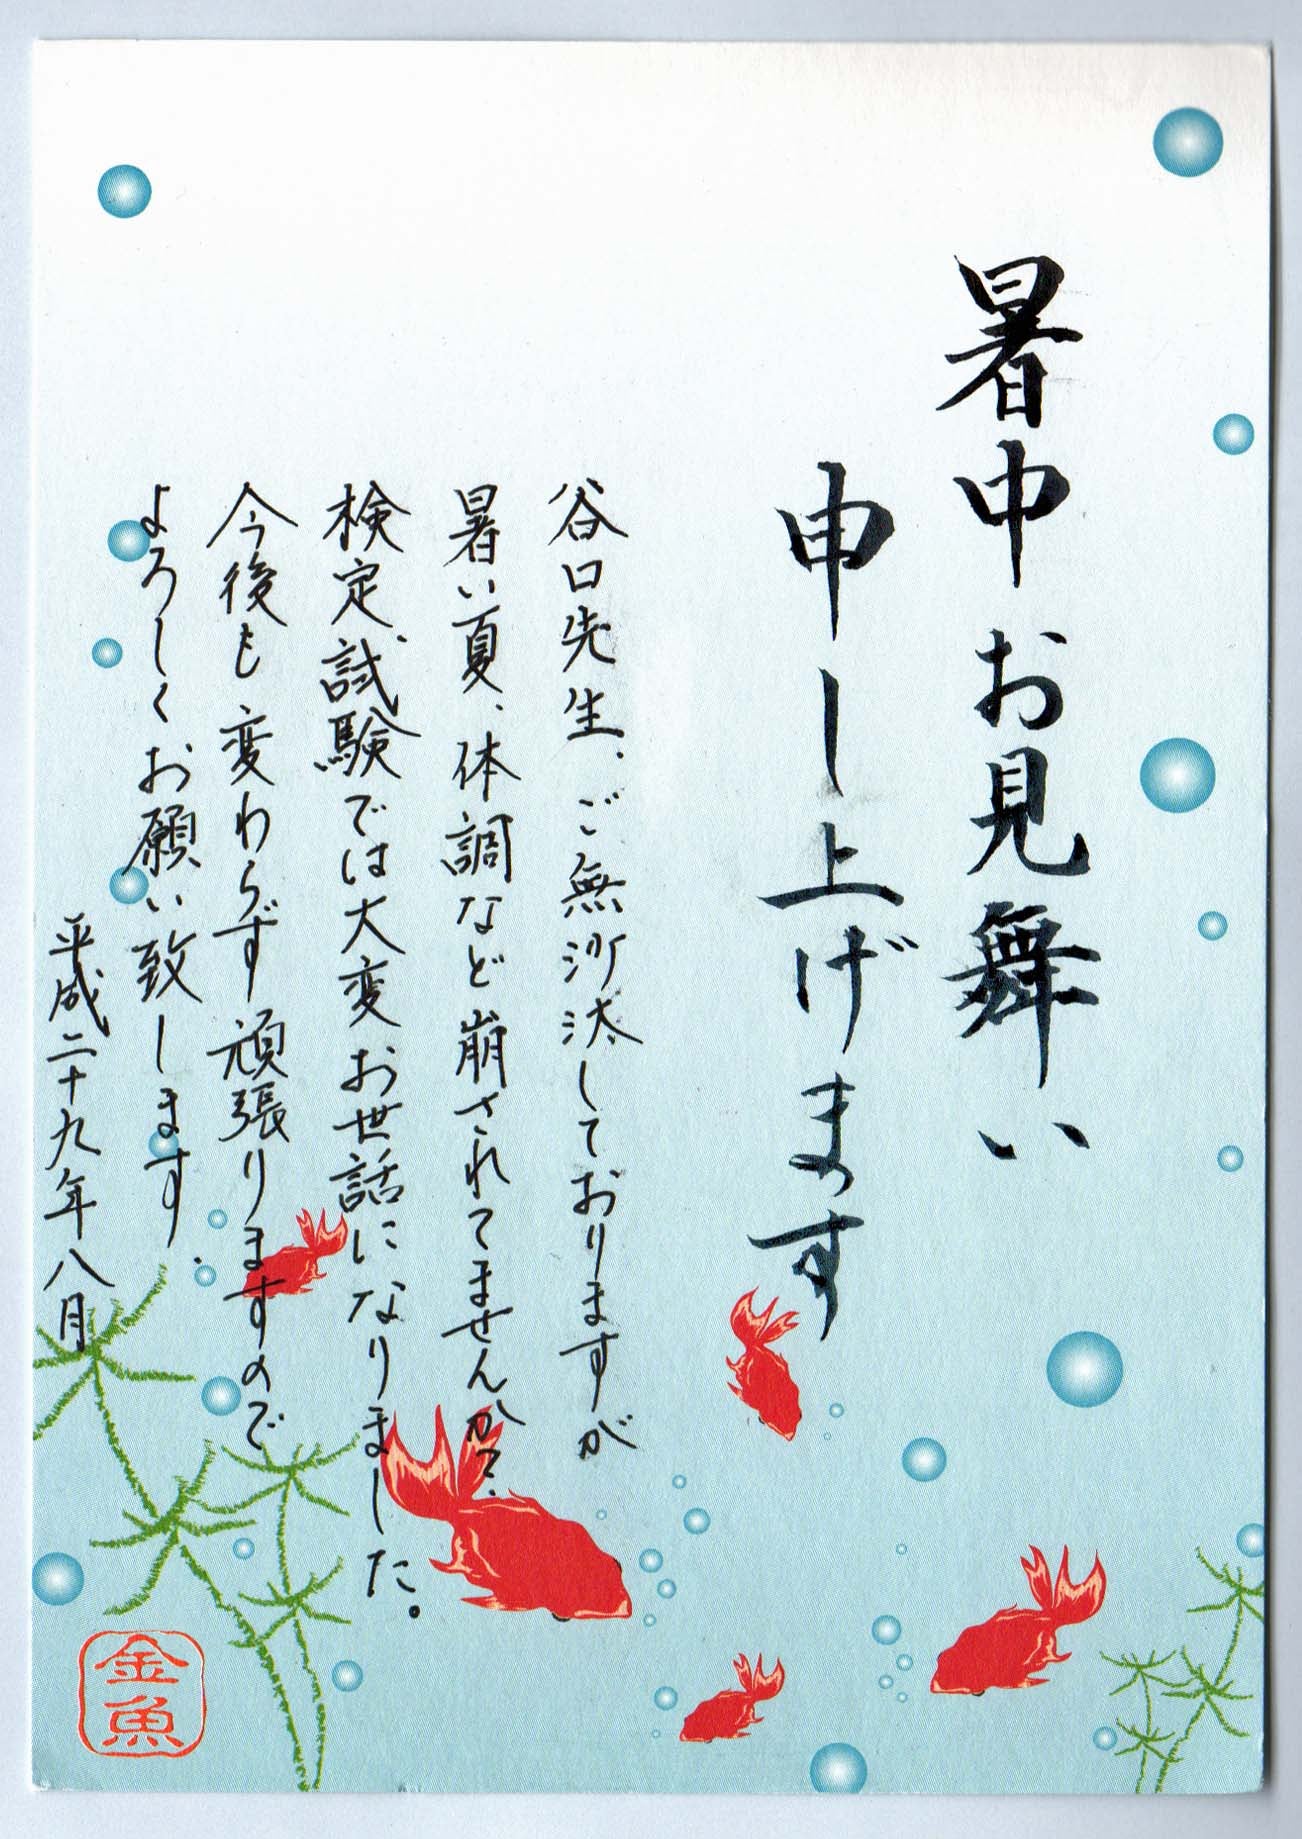 暑中お見舞い
申し上げます
谷口先生、ご無沙汰しておりますが
暑い夏、体調など崩されてませんか?
検定試験では大変お世話になりました。
今後も変わらず頑張りますので
よろしくお願い致します。
平成二十九年八月
金魚